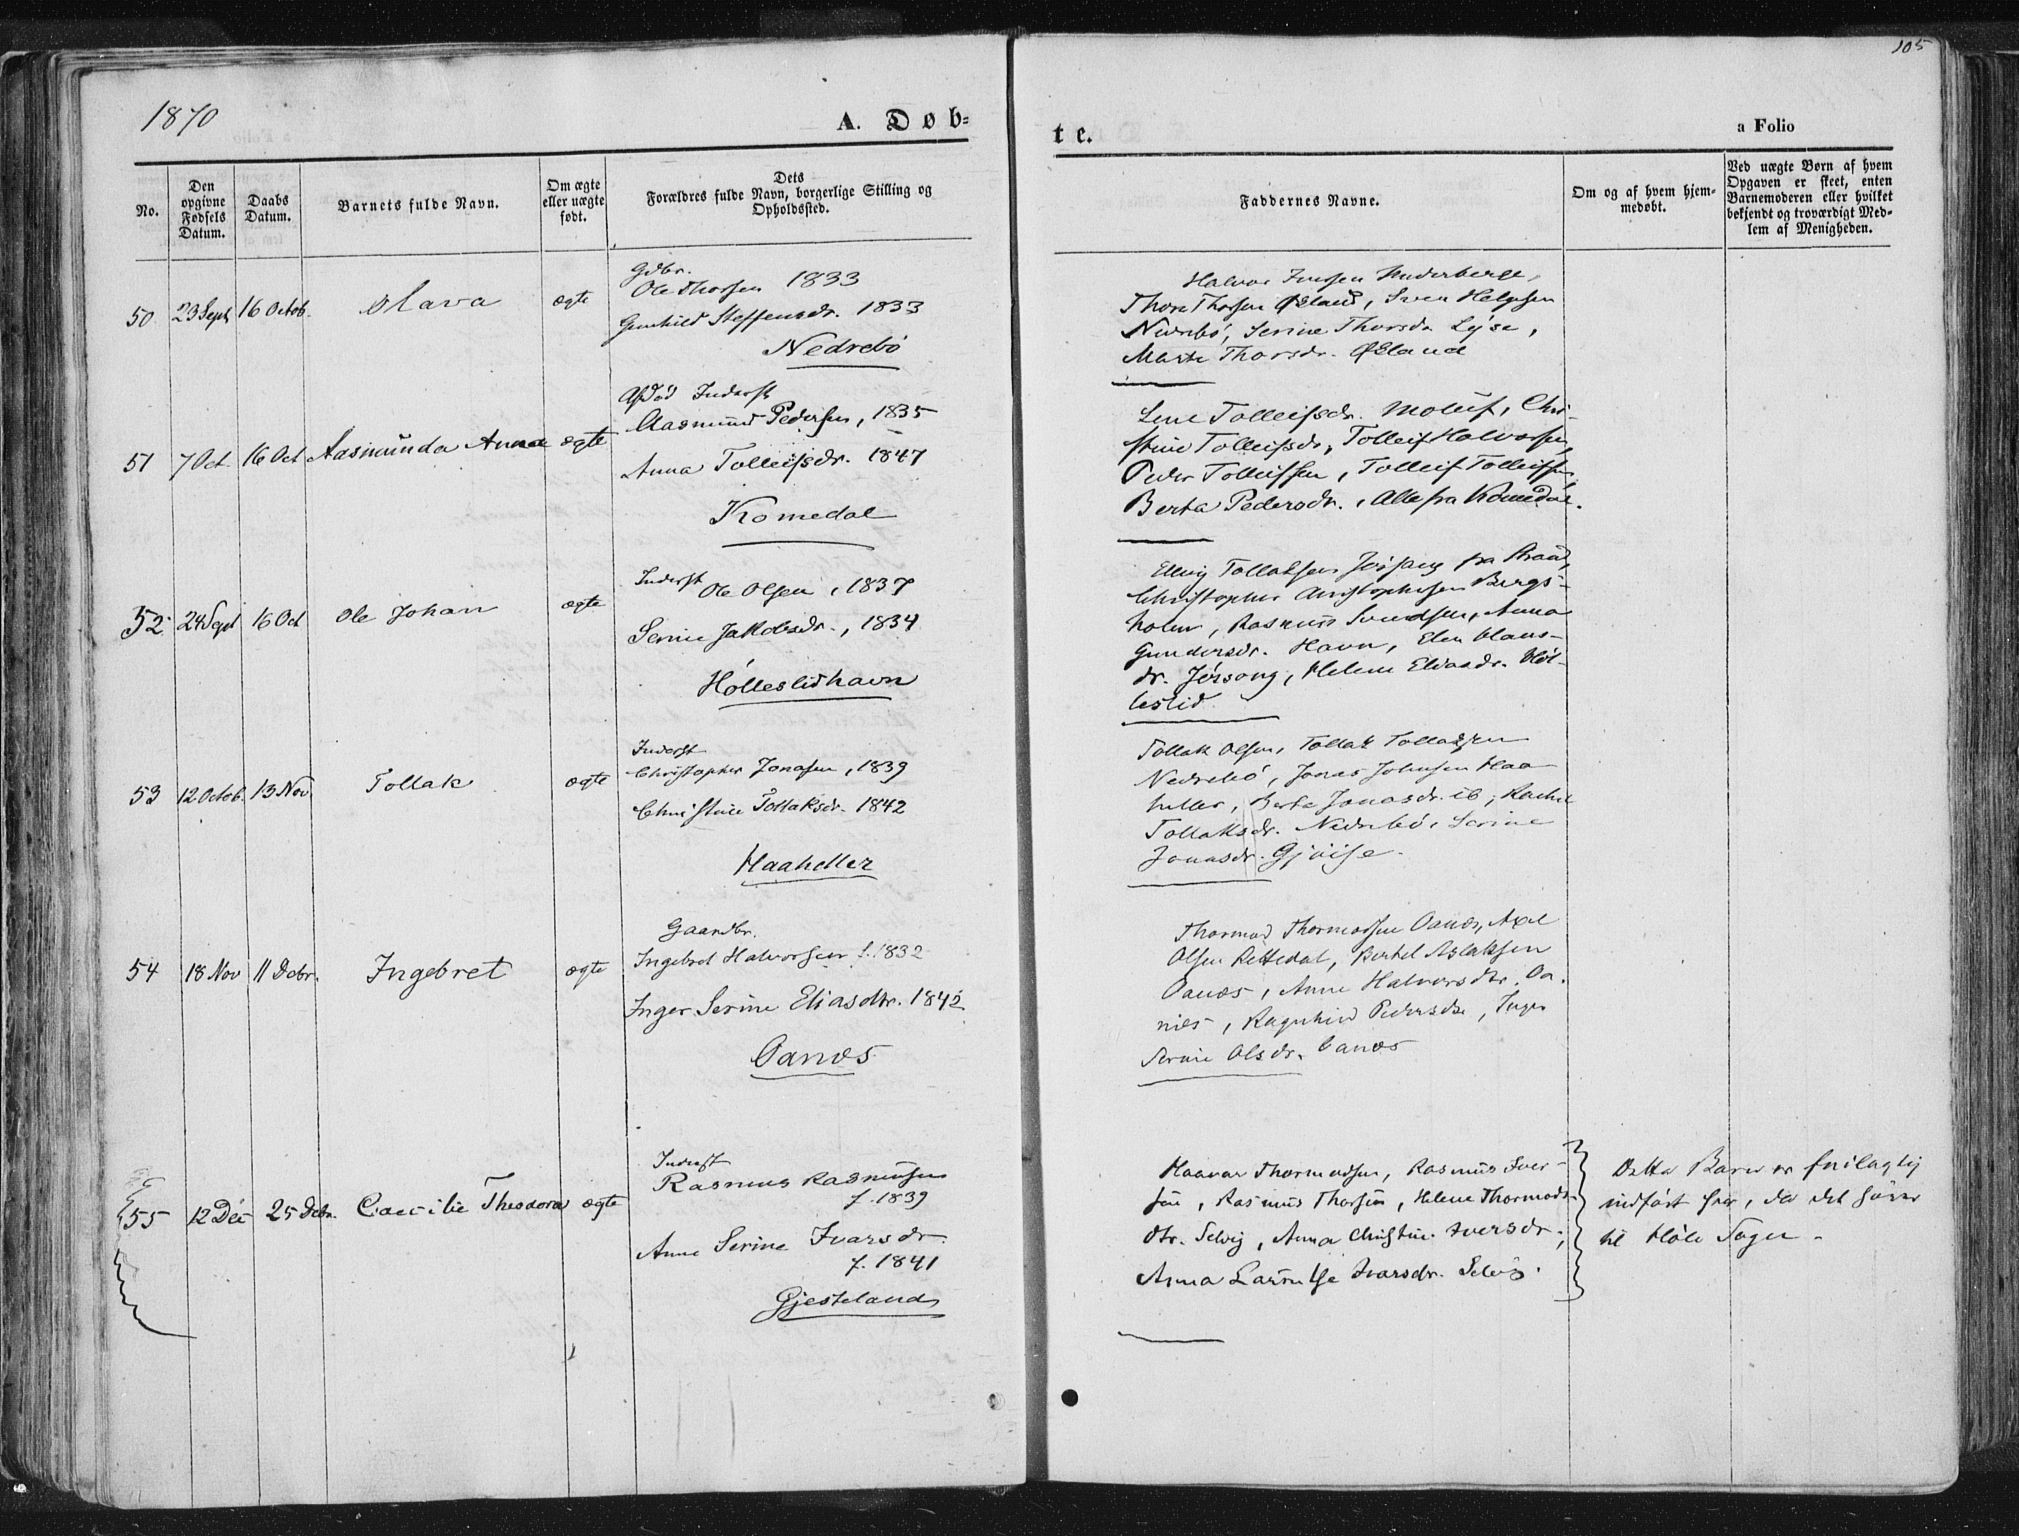 1870
A. Døb=
te.
a Folio
105
No.
Den opgivne Fødsels Datum.
Daabs Datum.
Barnets fulde Navn.
Om ægte eller uægte født.
Dets Forældres fulde Navn, borgerlige Stilling og Opholdssted.
Faddernes Navne.
Om og af hvem hjem-
medøbt.
Ved uægte Børn af hvem
Opgaven er skeet, enten
Barnemoderen eller hvilket
bekjendt og troværdigt Med-
lem af Menigheden.
50 23 Sept 16 Octob. Olava ægte
Gdbr.
Ole Thorsen 1833
Gunhild Steffensdr. 1833
Nedrebö
Halvor Jensen
Thore Thorsen Øsland, Sven Helgesen
Nedrebö, Serine Thorsdr Lyse,
Marte Thorsdr. Øsland
51 7 Oct 16 Oct Aasmunda Anna ægte
Afdød Inderst
Aasmund Pedersen, 1835
Anna Tolleifsdr. 1847
Komedal
Lene Tolleifsdr. Moluf, Chri-
stine Tolleifsdr, Tolleif Halvorsen,
Peder Tolleifsen, Tolleif Tolleifsen,
Berta Pedersdr., Alle fra Komedal.
52 24 Sept 16 Oct Ole Johan ægte
Inderst
Ole Olsen, 1837
Serine Jakobsdr., 1834
Hölleslidhavn
Elling Tollaksen Jössang fra
Christopher Christophersen Bergs-
holm, Rasmus Svendsen, Anna
Gundersdr. Havn, Elen Claus-
dr. Jörsong, Helene Eliasdr. Höl-
leslid.
53 12 Octob. 13 Nov. Tollak ægte
Inderst
Christopher Jonasen, 1839
Christine Tollaksdr. 1842
Haaheller
Tollak Olsen, Tollak Tollaksen
Nedrebö, Jonas Johnsen Haa-
heller, Berta Jonasdr. ib, Rachel
Tollaksdr. Nedrebö, Serine
Jonasdr. Gjöise.
54 18 Nov 11 Decbr. Ingebret ægte
Gaardbr.
Ingebret Halvorsen f. 1832
Inger Serine Eliasdtr. 1842
Oanæs
Thormod Thormodsen Oanæs, Axel
Olsen Rettedal, Bertel Aslaksen
Oanæs, Anne Halvorsdtr. Oa-
næs, Ragnhild Pedersdtr, Inger
Serine Olsdr. Oanæs
55 12 Dec 25 Decbr. Caecilie Theodora ægte
Inderst
Rasmus Rasmusen
f. 1839
Anne Serine Ivarsdr.
f. 1841
Gjesteland
Haavar Thormodsen, Rasmus Iver-
sen, Rasmus Thorsen, Helene Thormods-
dtr. Selvig, Anna Christine Iversdr.,
Anna Laurentse Ivarsdr. Selvig.
Dette Barn er feilagtig
indført her, da det hører
til Höle Sogn.